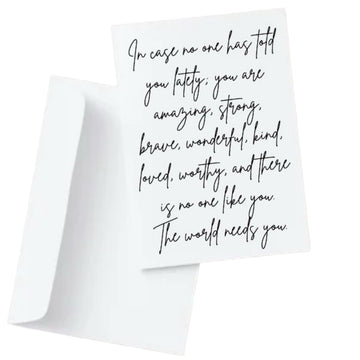 In case no one has told
you lately; you are
amazing, strong,
brave, wonderful, kind,
loved, worthy, and there
is no one like you.
The world needs you.